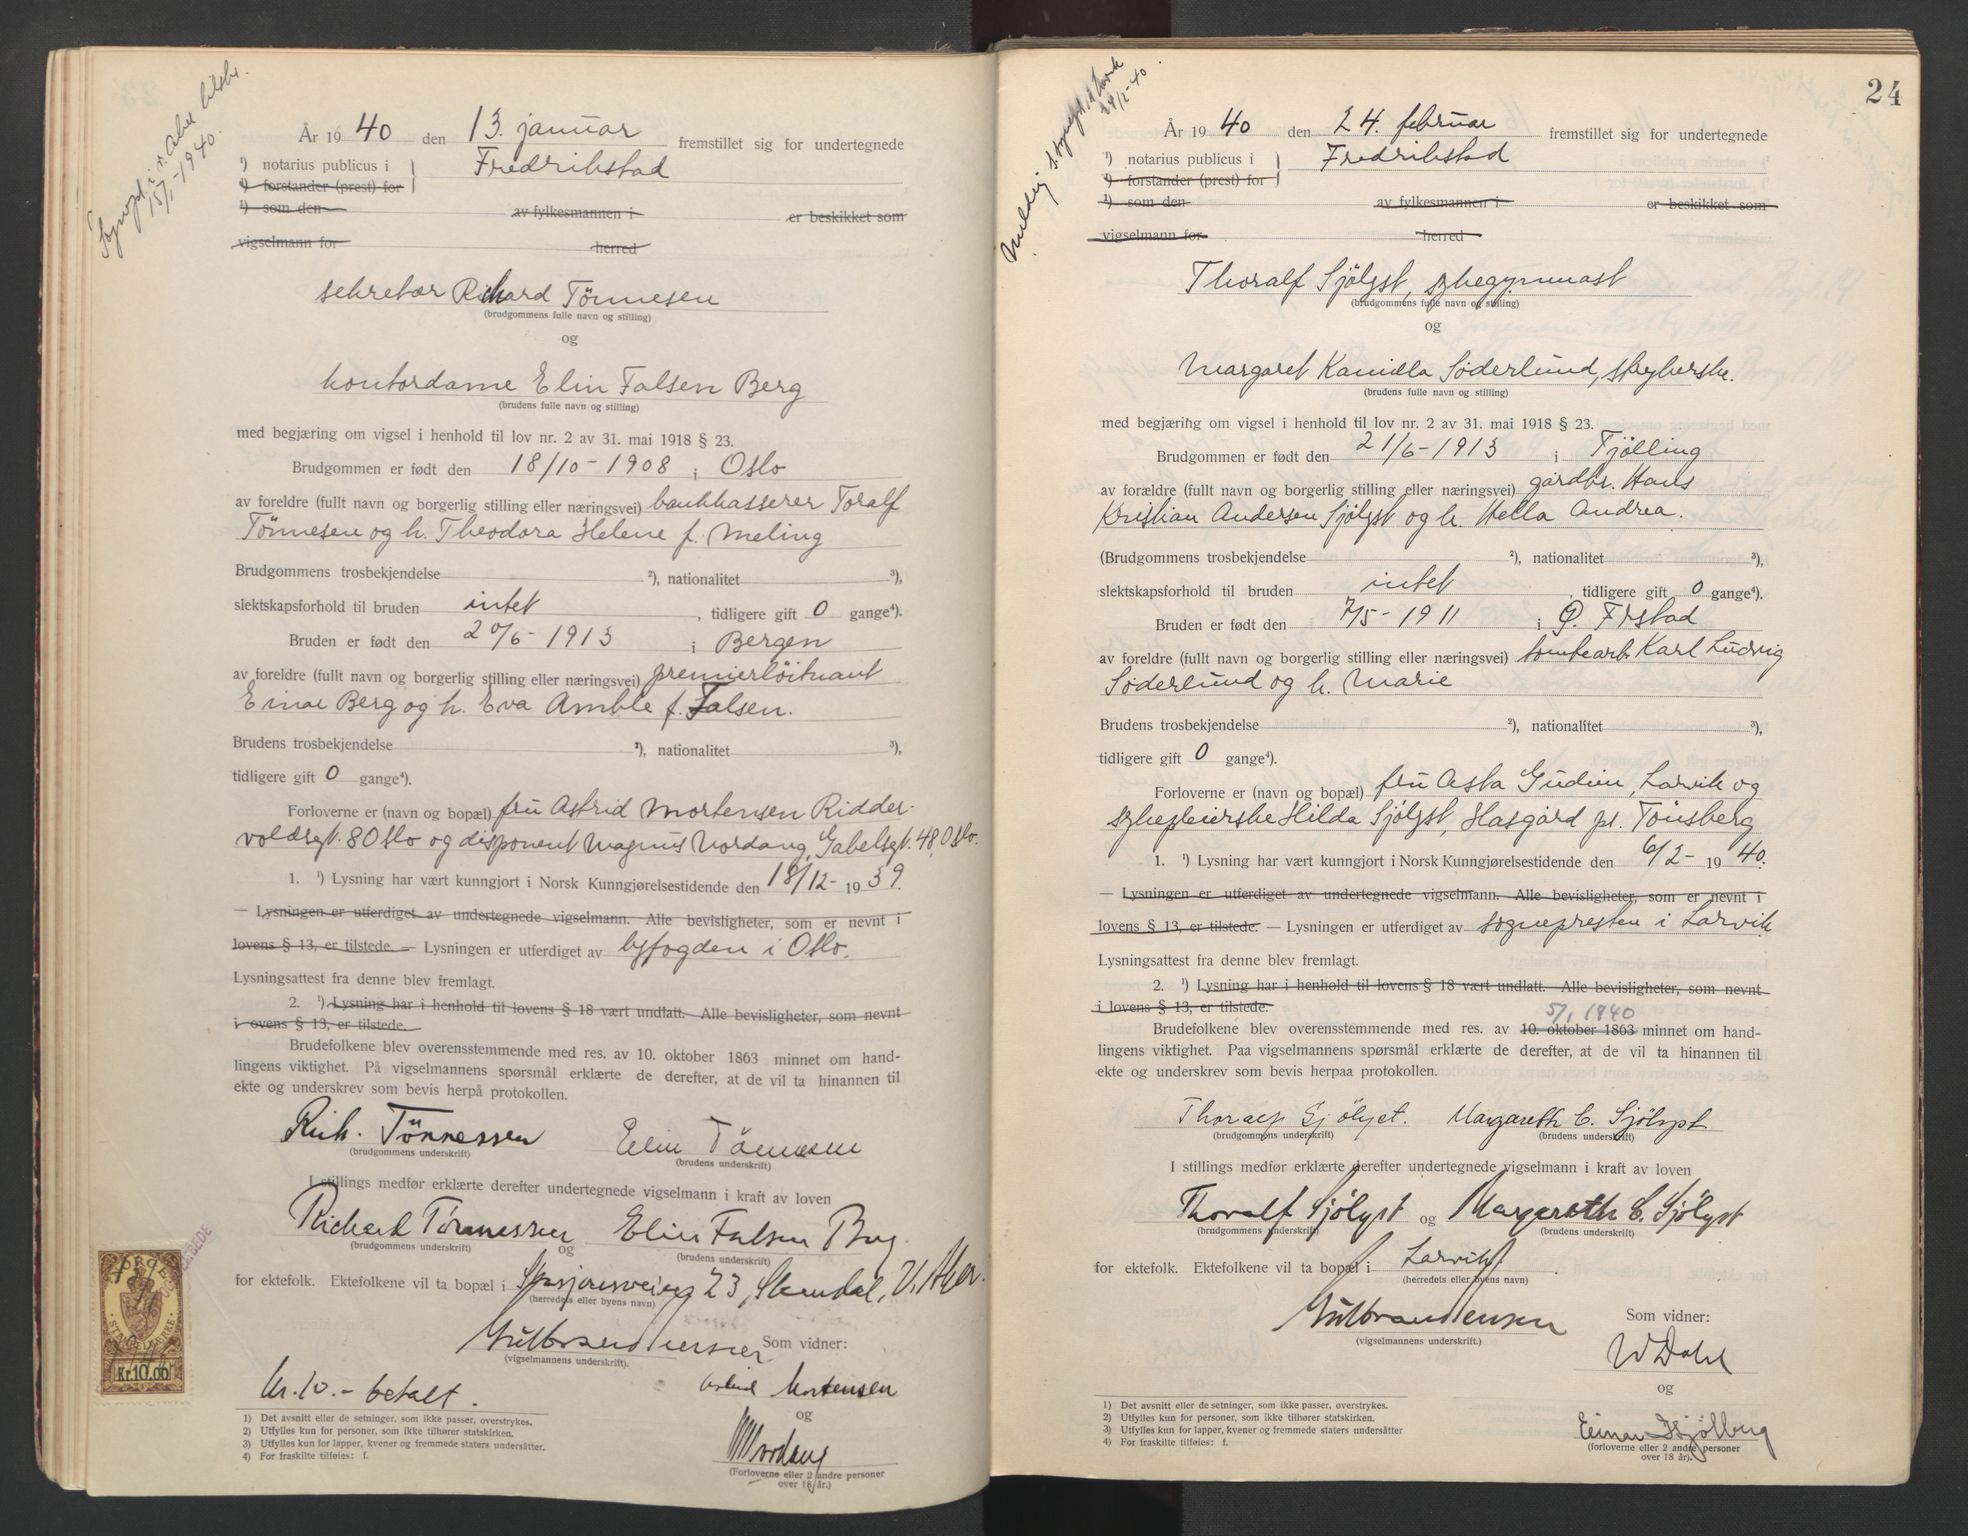 År 1940 den 13. januar fremstillet sig for undertegnede
¹) notarius publicus i Fredrikstad
¹) forstander (prest) for
¹) som den av fylkesmannen i er beskikket som
vigselmann for herred
sekretær Richard Tönnesen
(brudgommens fulle navn og stilling)
og
kontordame Elin Falsen Berg
(brudens fulle navn og stilling)
med begjæring om vigsel i henhold til lov nr. 2 av 31. mai 1918 § 23.
Brudgommen er født den 18/10-1908 i Oslo
av foreldre (fullt navn og borgerlig stilling eller næringsvei) bankkasserer Toralf
Tönnesen og h. Theodora Helene f. Meling
Brudgommens trosbekjendelse ²), nationalitet ³),
slektskapsforhold til bruden intet, tidligere gift 0 gange⁴).
Bruden er født den 20/6-1913 i Bergen
av foreldre (fullt navn og borgerlig stilling eller næringsvei) premierlöitnant
Einar Berg og h. Eva Amble f. Falsen.
Brudens trosbekjendelse ²), nationalitet ³),
tidligere gift 0 gange⁴).
Forloverne er (navn og bopæl) fru Astrid Mortensen Ridder-
voldsgt. 8 Oslo og disponent Magnus Nordang, Gabelsgt. 48, Oslo.
1. ¹) Lysning har vært kunngjort i Norsk Kunngjørelsestidende den 18/12-1939.
— Lysningen er utferdiget av undertegnede vigselmann. Alle bevisligheter, som er nevnt i
lovens § 13, er tilstede. — Lysningen er utferdiget av byfogden i Oslo.
Lysningsattest fra denne blev fremlagt.
2. ¹) Lysning har i henhold til lovens § 18 vært undlatt. Alle bevisligheter, som nevnt
i ovens § 13, er tilstede.
Brudefolkene blev overensstemmende med res. av 10. oktober 1863 minnet om hand-
lingens viktighet. På vigselmannens spørsmål erklærte de derefter, at de vil ta hinannen til
ekte og underskrev som bevis herpå protokollen.
Rich. Tönnessen Elin Tönnesen
(brudgommens underskrift) (brudens underskrift)
I stillings medfør erklærte derefter undertegnede vigselmann i kraft av loven
Richard Tönnessen og Elin Falsen Berg
(brudgommens underskrift) (brudens underskrift)
for ektefolk. Ektefolkene vil ta bopæl i 23, V. Aker.
(herredets eller byens navn)
Gulbrandsensen Som vidner:
(vigselmannens underskrift).
Kr. 10.- betalt. Astrid Mortensen
og
M Nordang
(Forloverne eller 2 andre personer
over 18 år.)
1) Det avsnitt eller de setninger, som ikke passer, overstrykes.
2) Utfylles kun for personer, som ikke tilhører statskirken.
3) Utfylles kun for lapper, kvener og fremmede staters undersåtter.
4) For fraskilte tilføies: f.
15/1-1940.
NORGE
STEMPELMERKE
Kr.10.00
24
År 1940 den 24. februar fremstillet sig for undertegnede
¹) notarius publicus i Fredrikstad
¹) forstander (prest) for
¹) som den av fylkesmannen i er beskikket som
vigselmann for herred
Thoralf Sjölyst, sykegymnast
(brudgommens fulle navn og stilling)
og
Margaret Kamilla Söderlund,
(brudens fulle navn og stilling)
med begjæring om vigsel i henhold til lov nr. 2 av 31. mai 1918 § 23.
Brudgommen er født den 21/6-1913 i Tjölling
av forældre (fullt navn og borgerlig stilling eller næringsvei) gårdbr. Hans
Kristian Andersen Sjölyst og h. Hella Andrea.
(Brudgommens trosbekjendelse ²), nationalitet ³),
slektskapsforhold til bruden intet, tidligere gift 0 gange⁴).
Bruden er født den 7/5-1911 i Ø. Frstad
av foreldre (fullt navn og borgerlig stilling eller næringsvei) tomtearb. Karl Ludvig
Söderlund og h. Marie
Brudens trosbekjendelse ²), nationalitet ³),
tidligere gift 0 gange⁴).
Forloverne er (navn og bopæl) fru Asta Gudim, Larvik og
sykepleierske Hilda Sjölyst, Hasgård pr. Tönsberg
1. ¹) Lysning har vært kunngjort i Norsk Kunngjørelsestidende den 6/2-1940.
— Lysningen er utferdiget av undertegnede vigselmann. Alle bevisligheter, som er nevnt i
lovens § 13, er tilstede. — Lysningen er utferdiget av sognepresten i Larvik
Lysningsattest fra denne blev fremlagt.
2. ¹) Lysning har i henhold til lovens § 18 vært undlatt. Alle bevisligheter, som nevnt
i lovens § 13, er tilstede. 5/1 1940
Brudefolkene blev overensstemmende med res. av 10. oktober 1863 minnet om hand-
lingens viktighet. Paa vigselmannens spørsmål erklærte de derefter, at de vil ta hinannen til
ekte og underskrev som bevis herpaa protokollen.
Thoralf Sjölyst. Margareth C. Sjölyst
(brudgommens underskrift) (brudens underskrift)
I stillings medfør erklærte derefter undertegnede vigselmann i kraft av loven
Thoralf Sjölyst og Margareth C. Sjölyst
(brudgommens underskrift) (brudens underskrift)
for ektefolk. Ektefolkene vil ta bopæl i Larvik
(herredets eller byens navn)
Gulbrandsensen Som vidner:
(vigselmannens underskrift.)
W Dahl
og
Einar Hjölberg
(forloverne eller 2 andre personer
over 18 år).
1) Det avsnitt eller de setninger, som ikke passer, overstrykes.
2) Utfylles kun for personer, som ikke tilhører statskirken.
3) Utfylles kun for lapper, kvener og fremmede staters undersåtter
4) For fraskilte tilføies: f.